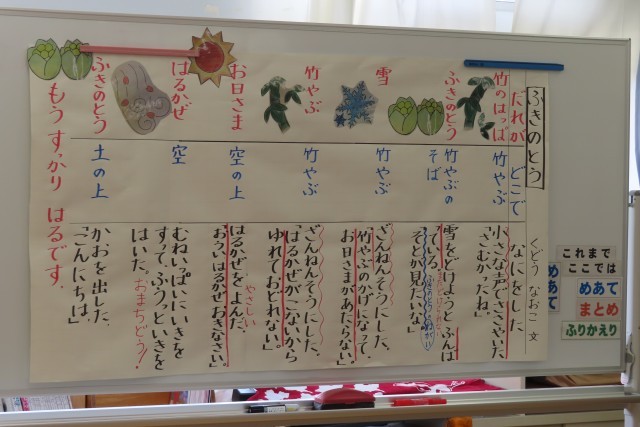 ふきのとう
くどう なおこ 文
だれが
どこで
なにをした
竹のはっぱ
竹やぶ
小さな声でささやいた
「さむかったね。」
ふきのとう
竹やぶの
そば
雪をどけようと ふんば
っている。
「そとが見たいな」
雪
竹やぶ
ざんねんそうにした。
「竹やぶのかげになって、
お日さまがあたらない。」
竹やぶ
竹やぶ
ざんねんそうにした。
「はるかぜがこないから
ゆれておどれない。」
お日さま
空の上
はるかぜをよんだ。
やさしい
「おういはるかぜおきなさい。」
はるかぜ
空
むねいっぱいにいきを
すって、ふうっといきを
はいた。
おまちどう！
ふきのとう
土の上
かおを出した。
「こんにちは。」
もう すっかり はるです.
これまで
ここでは
めあて
めあて
まとめ
ふりかえり